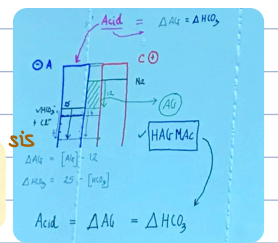 Acid = ΔAG = ΔHCO₃
⊖ A C ⊕
Na
↓HCO₃
+ Cl⁻
12
AG
✓ HAGMAC
sis
ΔAG = [AG] - 12
ΔHCO₃ = 25 - [HCO₃]
Acid = ΔAG = ΔHCO₃